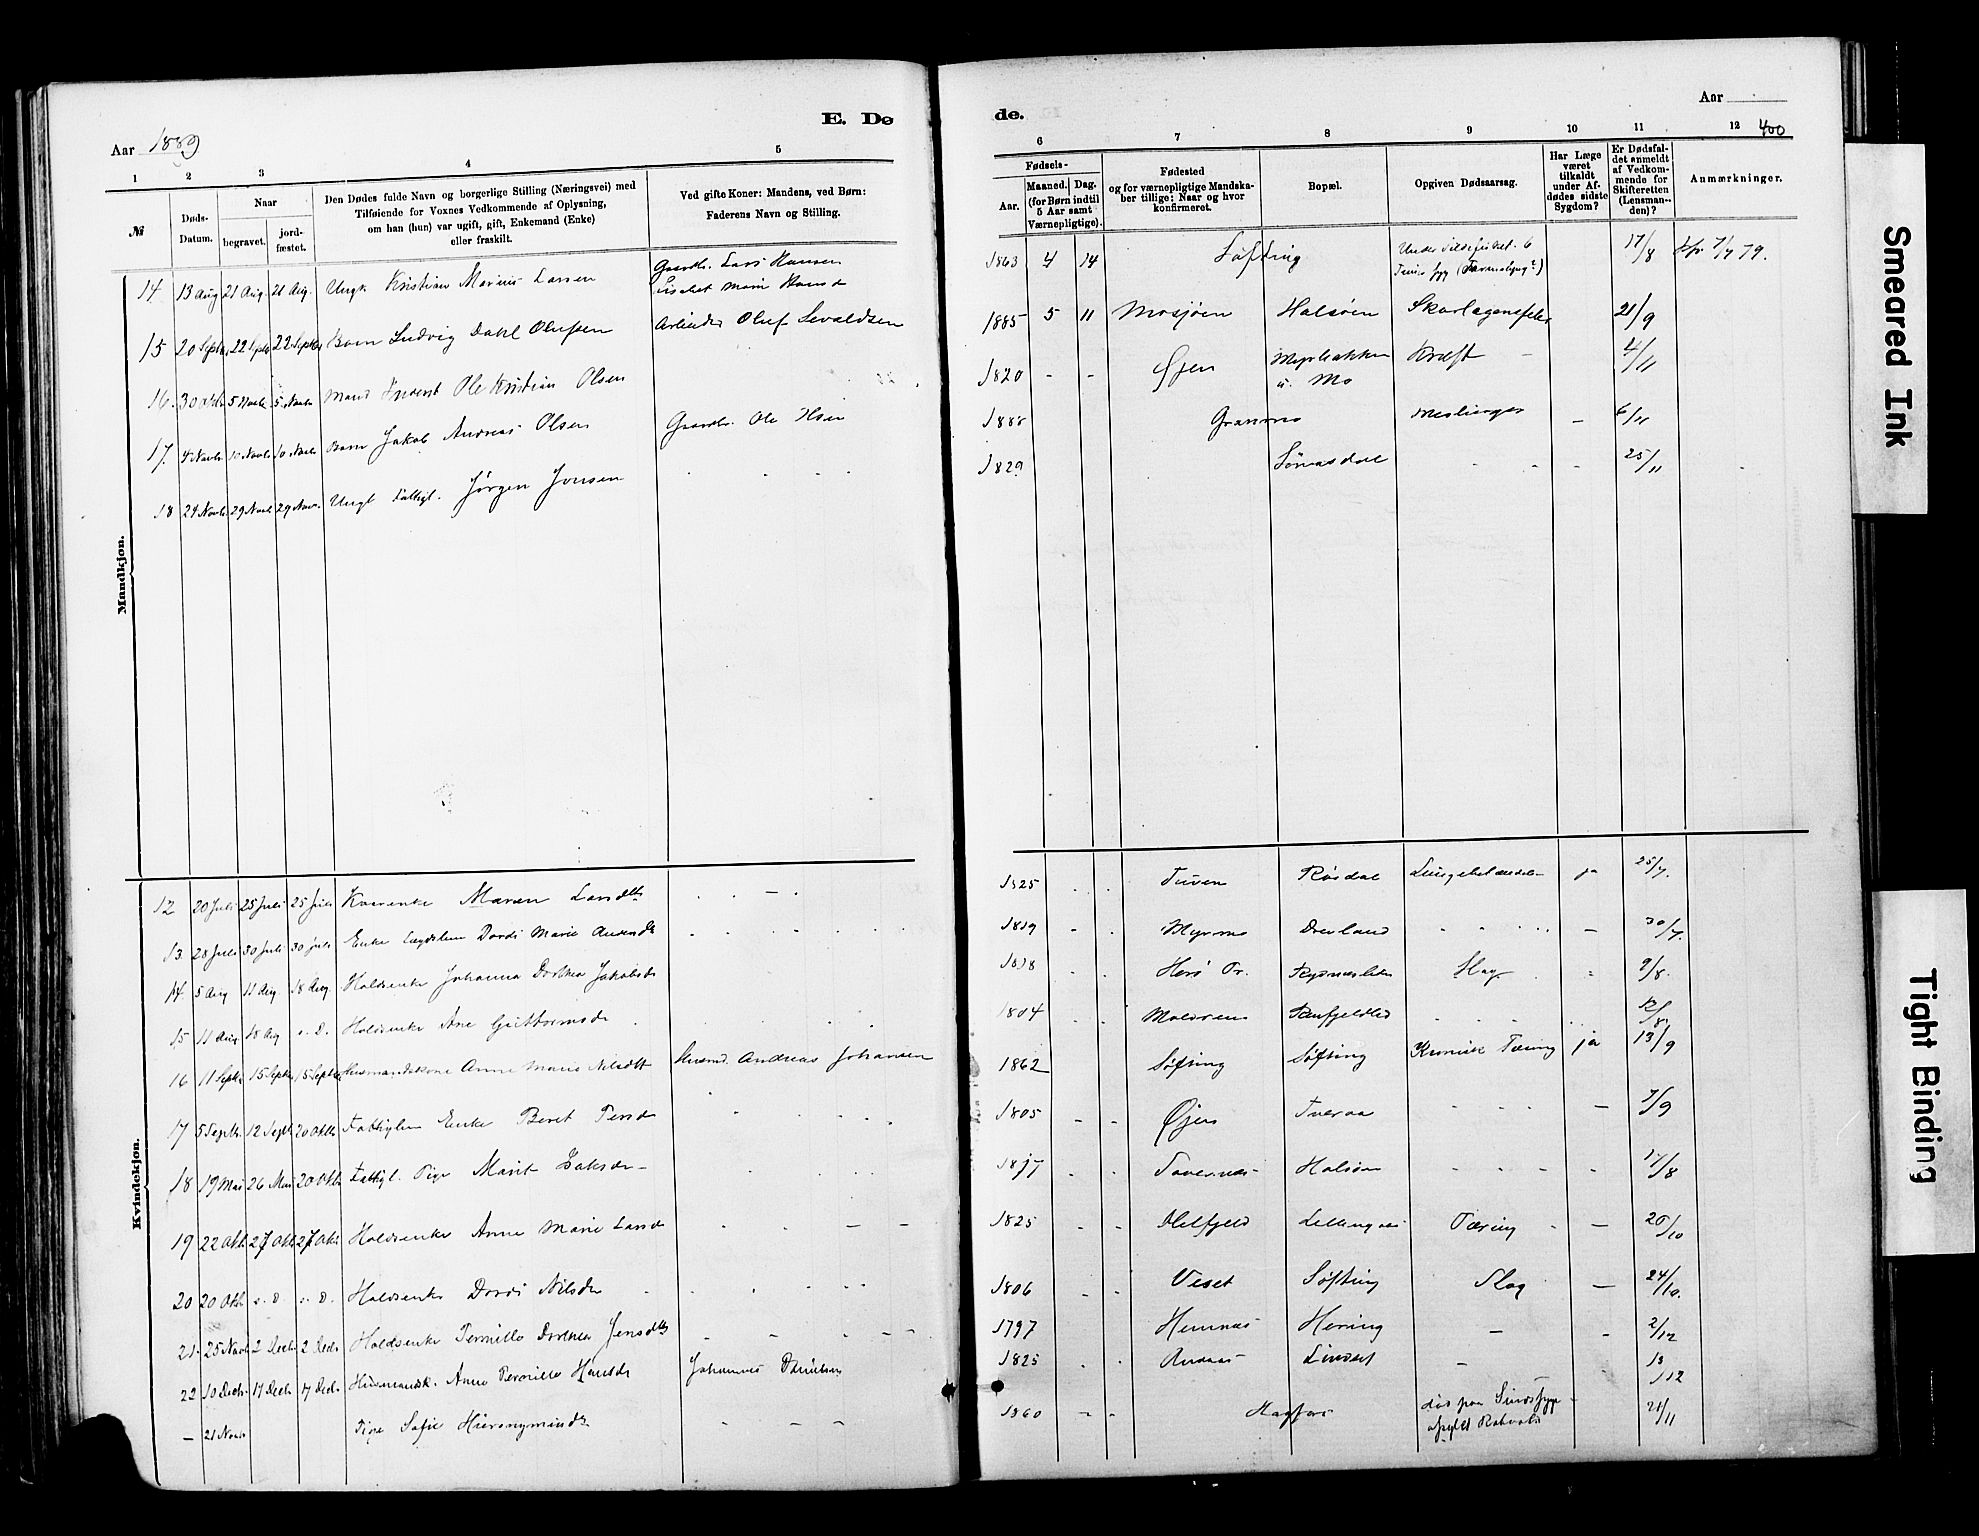 E. Dø
de.
Aar 1889
Aar
400
1 2 3 4 5 6 7 8 9 10 11 12
№
Døds-
Datum.
Naar
begravet.
jord-
fæstet.
Den Dødes fulde Navn og borgerlige Stilling (Næringsvei) med
Tilføiende for Voxnes Vedkommende af Oplysning,
om han (hun) var ugift, gift, Enkemand (Enke)
eller fraskilt.
Ved gifte Koner: Mandens, ved Børn:
Faderens Navn og Stilling.
Fødsels-
Aar.
Maaned.
Dag.
(for Børn indtil
5 Aar samt
Værnepligtige).
Fødested
og for værnepligtige Mandska-
ber tillige: Naar og hvor
konfirmeret.
Bopæl.
Opgiven Dødsaarsag.
Har Læge
været
tilkaldt
under Af-
dødes sidste
Sygdom?
Er Dødsfal-
det anmeldt
af Vedkom-
mende for
Skifteretten
(Lensman-
den)?
Anmærkninger.
Mandkjøn.
14 13 Aug 21 Aug. 21 Aug. Ungk. Kristian Marius Larsen Gaardbr. Lars Hansen 1863 4 14 Søfting 17/8
15 20 Septbr 22 Septbr 22 Septbr Barn Ludvig Dahl Olufsen Arbeider Oluf Sevaldsen 1885 5 11 Mosjøen Halsøen Skarlagensfeber 21/9
16. 30 Oktbr 5 Novbr 5 Novbr Mand Inderst Ole Kristian Olsen 1820 - - Øjen Myrbakken u. Mo Kræft - 4/11
17. 4 Novbr 10 Novbr 10 Novbr Barn Jakob Andreas Olsen Gaardbr. Ole 1888 Granmo Meslinger - 6/11
18 24 Novbr. 29 Novbr 29 Novbr. Ungk Fattigl. Jørgen Jonsen 1829 25/11
Kvindekjøn.
12 20 Juli 25 Juli 25 Juli Maren Larsdtr 1825 Tuven Røsdal ja 25/7.
13. 28 Juli 30 Juli 30 juli Enke Dordi Marie 1819 Myrmo Drevland - 30/7.
14 5 Aug 11 Aug 18 Aug. Holdsenke Johanna Dorthea Jakobsdr 1818 Herø Pr. Slag 9/8.
15 11 Aug 18 Aug s. D. Holdsenke Ane Guttormsdr 1804 12/8.
16 11 Septbr 15 Septbr 15 Septbr Husmandskone Anne Marie Nilsdtr Husmd. Andreas Johansen 1862 Søfting Søfting Kronisk Tæring ja 13/9
17 5 Septbr. 12 Septbr 20 Oktbr Fattiglem Enke Beret Persdr 1805 Øjen Tveraa - 7/9
18 19 Mai 26 Mai 20 Oktbr Fattigl. Pige Marit Halsøen 17/8
19 22 Oktbr 27 Oktbr 27 Oktbr Holdsenke Anne Marie Larsdr 1825 Tæring - 20/10
20 20 Oktbr s. D. s. D. Holdsenke Dordi Nilsdr 1806 Søfting Slag - 24/10.
21. 25 Novbr 2 Decbr 2 Decbr Holdsenke Pernille Dorthea Jensdtr 1797 Hemnæs Hering - 2/12
22 10 Decbr. 17 Decbr 17 Decbr. Husmandsk. Anne Pernille Hansdr Johannes Danielsen 1825 - 13/12
- 21 Novbr Pige Sofie Hieronymusdr 1860 Hagfors død paa Sindssyge- 21/11
Smeared Ink
Tight Binding